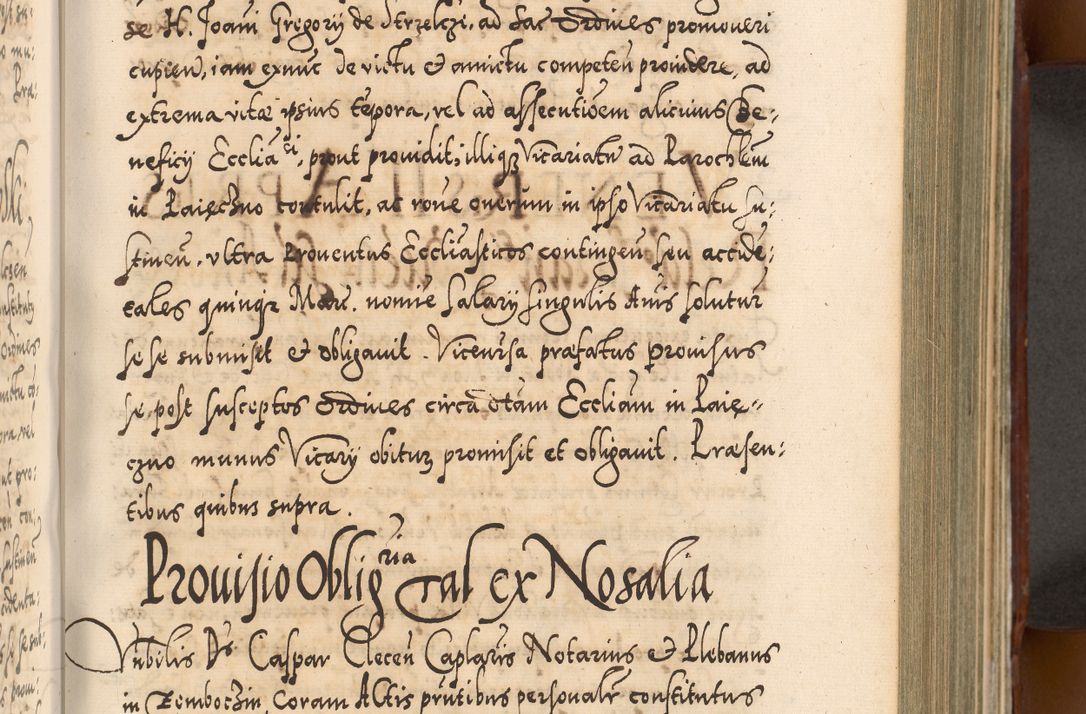 se H. Joani Gregory de Strzelcze, ad sac Ordines promoveri
cupien, iam exnuc de victu & amictu competen prouidere, ad
extrema vitæ ipsius tepora, vel ad assecutioem alicuius Be-
neficÿ Ecclia ci, prout prouidit, illiq Vicariatu ad Parochlem
in Raięczno contulit, at rone onerum in ipso Vicariatu su-
stinen, vltra Prouentus Eccliasticos contingen seu accide-
tales quinq Marc. nomie Salarÿ singulis Anis solutur
se se submisit & obligauit. Viceuersa præfatus prouisus
se post susceptos Ordines circa dtam Eccliam in Raię-
czno munus Vicarÿ obitur promisit et obligauit. Præsen-
tibus quibus supra.
Prouisio Oblig ria Tal ex Nosalia
Vnbilis Ds Caspar Elecen Caplaris Notarius & Plebanus
in Remboczin Coram Actis prntibus personalr constitutus